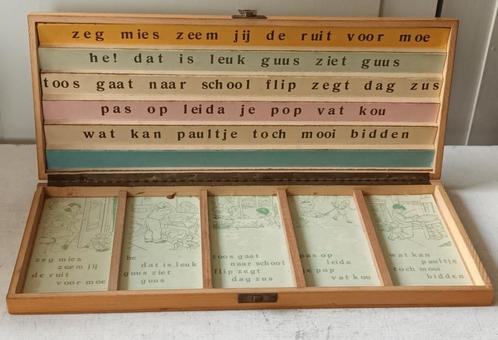 zeg mies zeem jij de ruit voor moe
he! dat is leuk guus ziet guus
toos gaat naar school flip zegt dag zus
pas op leida je pop vat kou
wat kan paultje toch mooi bidden
zeg mies
zeem jij
de ruit
voor moe
he
dat is leuk
guus ziet
guus
toos gaat
naar school
flip zegt
dag zus
pas op
leida
je pop
vat kou
wat kan
paultje
toch mooi
bidden